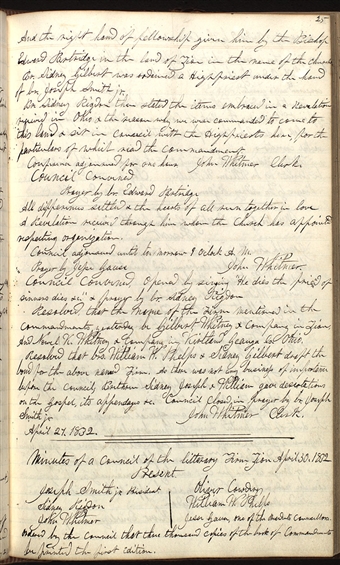 25
And the right hand of fellowship given him by the Bishop
Edward Partridge in the land of Zion in the name of the Church
Br. Sidney Gilbert was ordained a Highpriest under the hand
of br. Joseph Smith jr.
Br. Sidney Rigdon then stated the items embraced in a Revelation
received in Ohio & the reason why we were commanded to come to
this land & sit in Council with the Highpriests here, for the
particulars of which read the commandment
Conference adjourned for one hour John Whitmer Clerk.
Council Convened
Prayer by br. Edward Partridge
All differences settled & the hearts of all run together in love
A Revelation received through him whom the Church has appointed
respecting organization.
Council adjourned until tomorrow 9 oclock A.M.
Prayer by Jesse Gause John Whitmer
Council Convened, Opened by singing He dies the friend of
sinners dies &c & prayer by br. Sidney Rigdon
Resolved that the name of the Firm mentioned in the
Commandments yesterday be Gilbert Whitney & Company in Zion,
And Newel K. Whitney & Company in Kirtland Geauga Co. Ohio.
Resolved that brs. William W. Phelps & Sidney Gilbert draft the
bond for the above named Firm. As there was not any business of importance
before the council Brethren Sidney Joseph & William gave dissertations
on the Gospel, its appendages &c. Council Closed in prayer by br. Joseph
Smith jr. John Whitmer Clerk.
April 27, 1832.
Minutes of a Council of the literary Firm Zion April 30, 1832
Present
Joseph Smith jr. Oliver Cowdery
Sidney Rigdon William W. Phelps
John Whitmer Jesse Gause, one of the Presidents Councillors.
Ordered by the Council that three thousand copies of the book of Commandments
be printed the first edition.